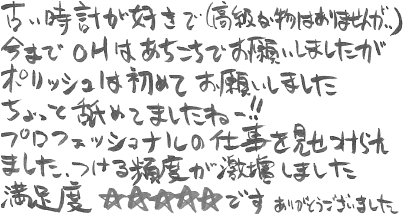 古い時計が好きで(高級な物はありませんが..)
今までOHはあちこちでお願いしましたが
ポリッシュは初めてお願いしました
ちょっと舐めてましたねー!!
プロフェッショナルの仕事を見せつけられ
ました、つける頻度が激増しました
満足度 ☆☆☆☆☆です ありがとうございました